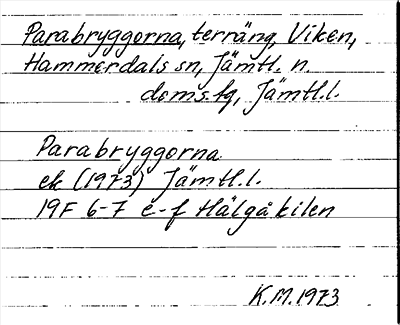 Parabryggorna, terräng, Viken,
Hammerdals sn, Jämtl. n.
doms.fg, Jämtl.l.
Parabryggorna
ek (1973) Jämtl.l.
19F 6-7 e-f Hälgåkilen
K.M. 1973